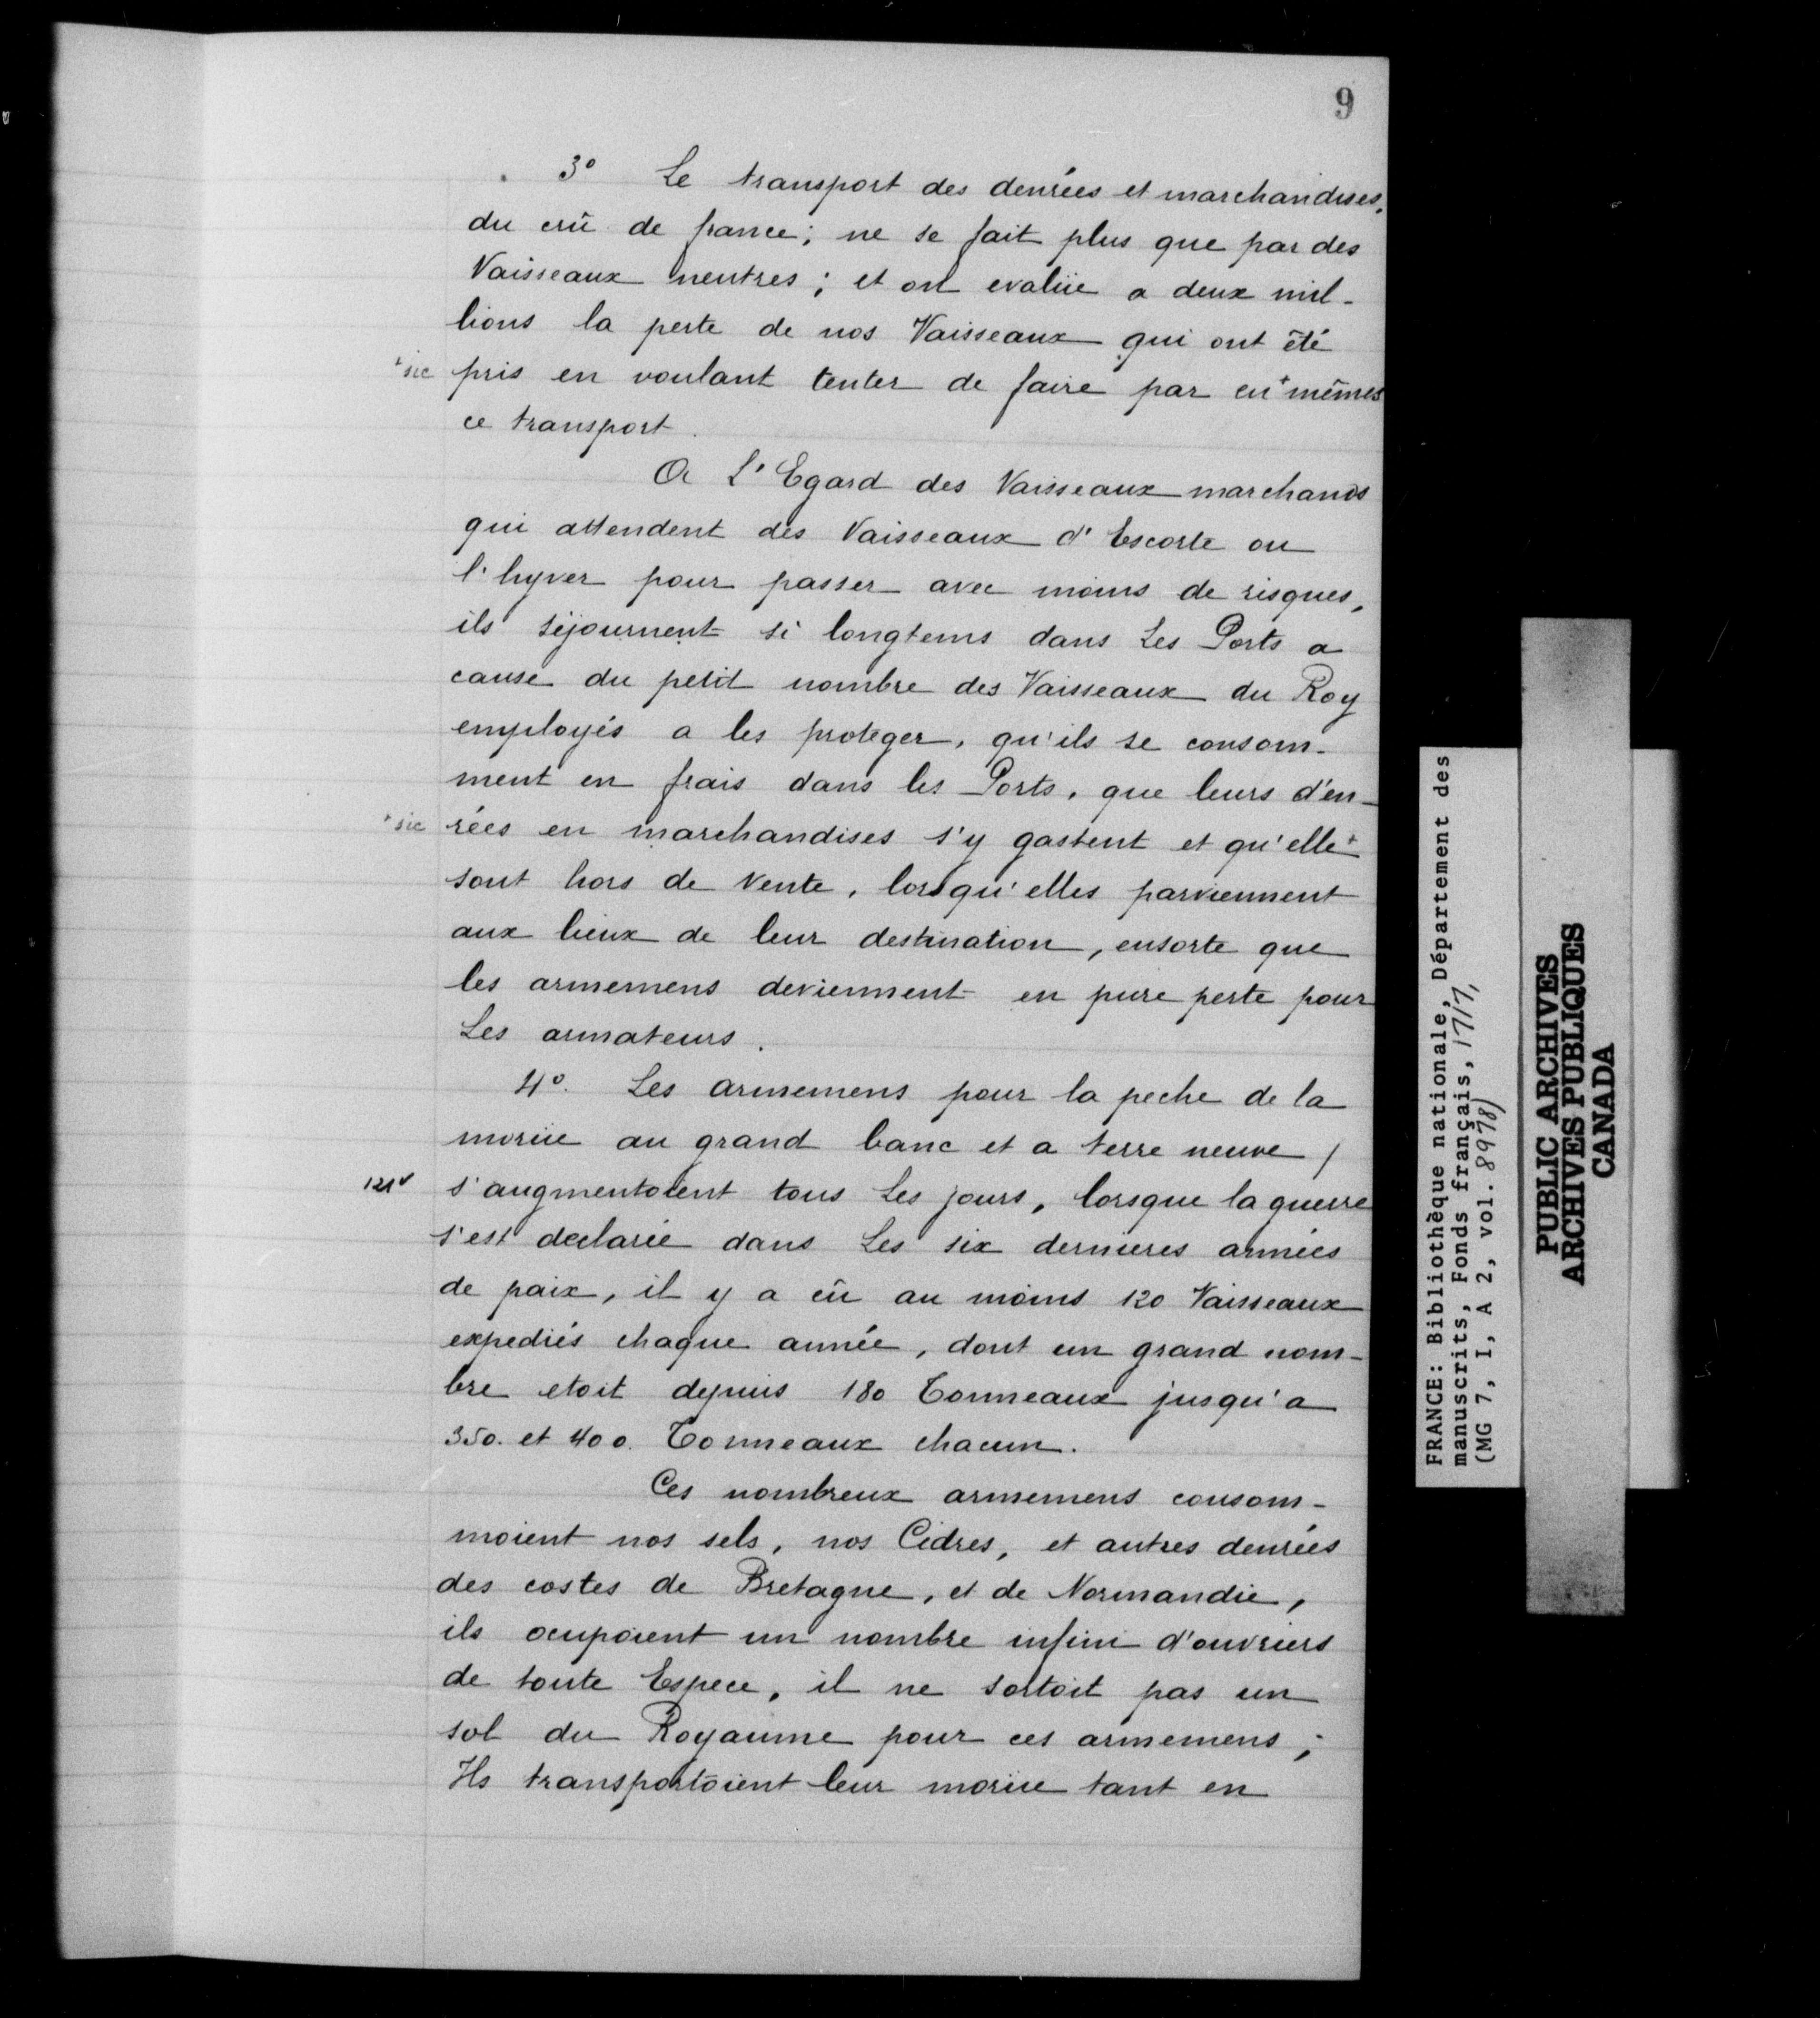 9
3º Le transport des denrées et marchandises,
du crû de france; ne se fait plus que par des
Vaisseaux neutres; et on evalüe a deux mil-
lions la perte de nos Vaisseaux qui ont été
+sic pris en voulant tenter de faire par eu+ mêmes
ce transport.
A L'Egard des Vaisseaux marchands
qui attendent des Vaisseaux d'Escorte ou
l'hyver pour passer avec moins de risques,
ils séjournent si longtems dans Les Ports a
cause du petit nombre des Vaisseaux du Roy
employés a les proteger, qu'ils se consom-
ment en frais dans les Ports, que leurs d'en-
+sic rées en marchandises s'y gastent et qu'elle+
sont hors de vente, lorsqu'elles parviennent
aux lieux de leur destination, ensorte que
les armemens deviennent en pure perte pour
Les armateurs.
4º. Les armemens pour la peche de la
morüe au grand banc et a terre neuve /
121v s'augmentoient tous Les jours, lorsque la guerre
s'est declarée dans Les six dernieres années
de paix, il y a eü au moins 120 Vaisseaux
expediés chaque année, dont un grand nom-
bre etoit depuis 180 Tonneaux jusqu'a
350. et 400. Tonneaux chacun.
Ces nombreux armemens consom-
moient nos sels, nos Cidres, et autres denrées
des costes de Bretagne, et de Normandie,
ils ocupoient un nombre infini d'ouvriers
de toute Espece, il ne sortoit pas un
sol du Royaume pour ces armemens;
Ils transportoient leur morüe tant en
FRANCE: Bibliothèque nationale, Département des
manuscrits, Fonds français, 1717,
(MG 7, I, A 2, vol. 8978)
PUBLIC ARCHIVES
ARCHIVES PUBLIQUES
CANADA